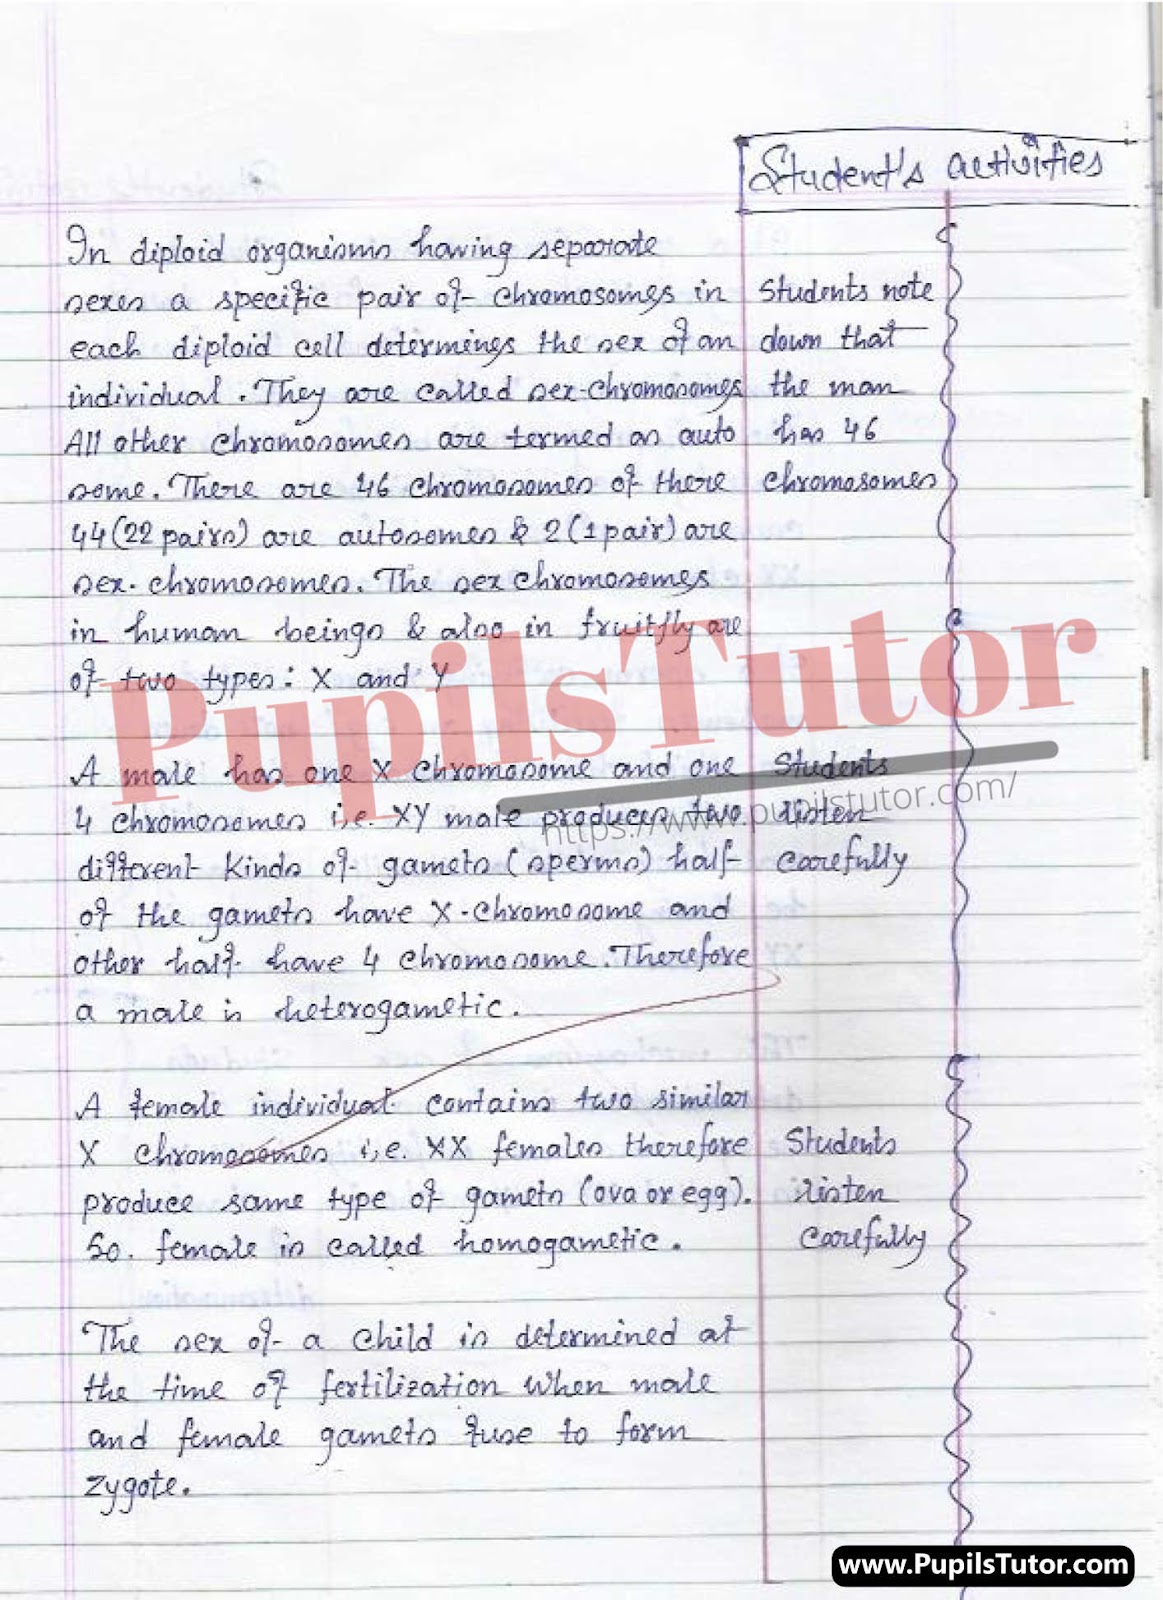 Student's activities
In diploid organisms having separate
sexes a specific pair of chromosomes in
each diploid cell determines the sex of an
individual. They are called sex-chromosomes
All other chromosomes are termed as auto
some. There are 46 chromosomes of there
44 (22 pairs) are autosomes & 2 (1 pair) are
sex-chromosomes. The sex chromosomes
in human beings & also in fruitfly are
of two types: X and Y
Students note
down that
the man
has 46
chromosomes
A male has one X chromosome and one
4 chromosomes i,e. XY male produces two
different kinds of gamets (sperms) half
of the gamets have X-chromosome and
other half have 4 chromosome. Therefore
a male is heterogametic.
Students
listen
carefully
A female individual contains two similar
X chromosomes i,e. XX females therefore
produce same type of gamets (ova or egg).
So. female is called homogametic.
Students
listen
carefully
The sex of a child is determined at
the time of fertilization when male
and female gamets fuse to form
zygote.
PupilsTutor
https://www.pupilstutor.com/
www.PupilsTutor.com